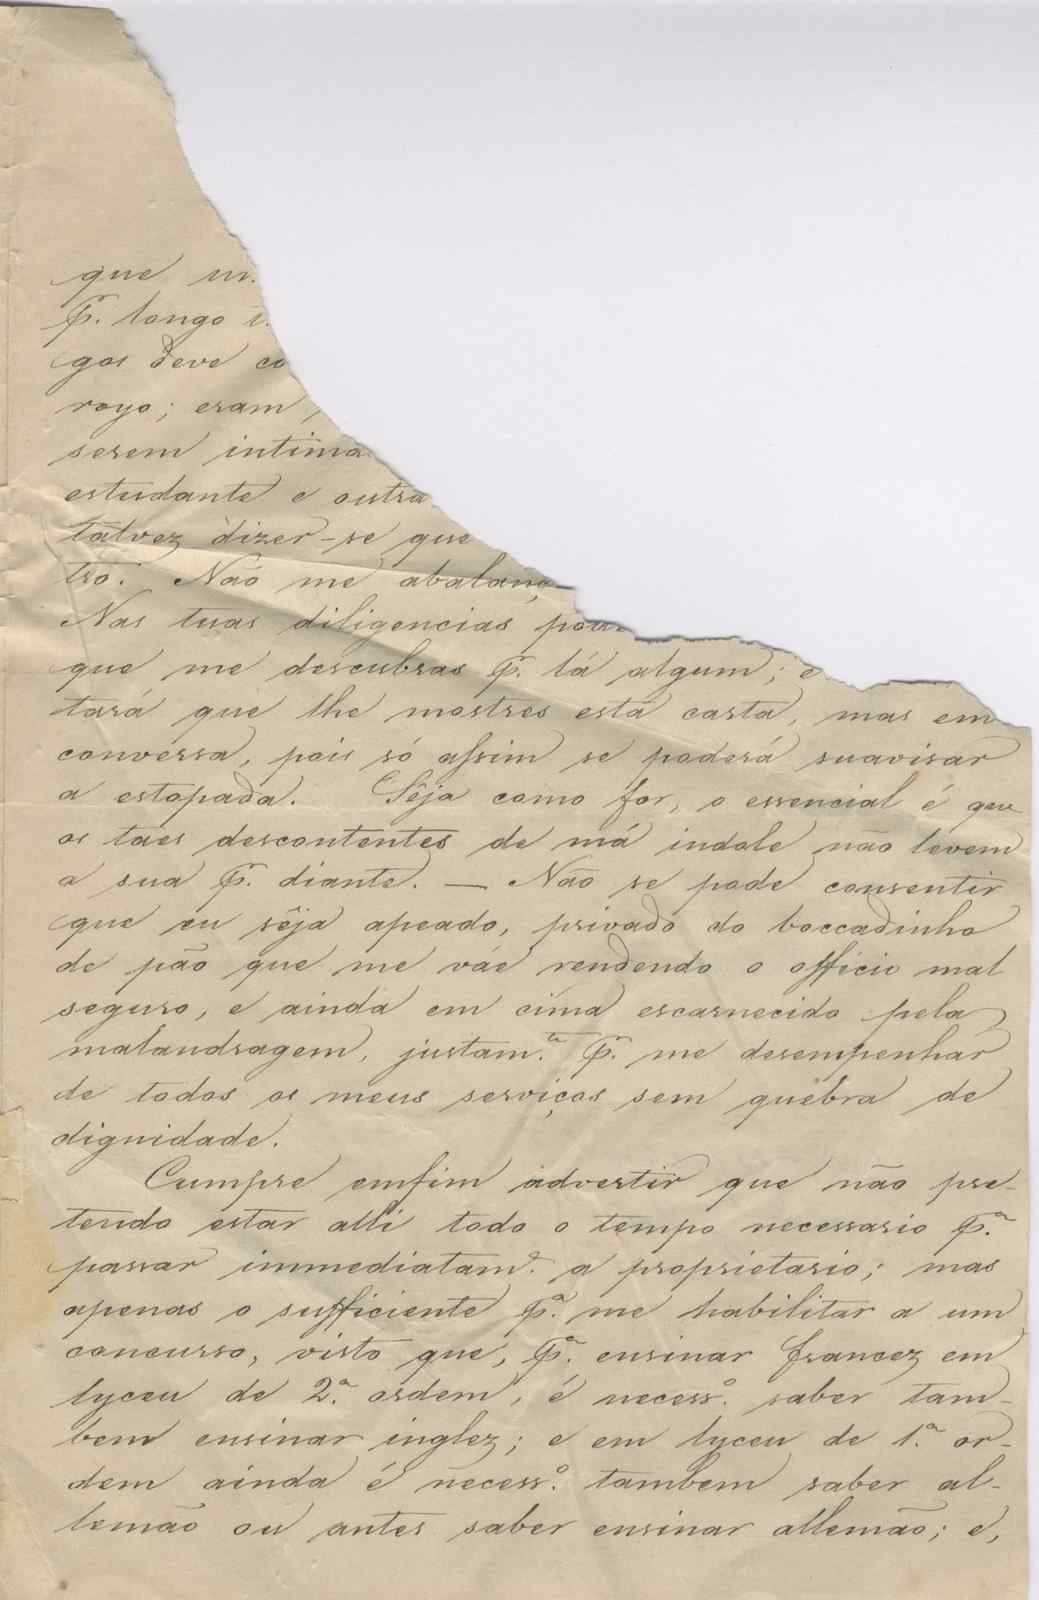 que
p.ª longo
gos deve co
royo; eram
serem intima
estudante e outra
talvez dizer-se que
tro. Não me abalanç
Nas tuas diligencias
que me descubras p.ª lá algum; e
tará que lhe mostres esta carta, mas em
conversa, pois só assim se poderá suavisar
a estopada. Sêja como fôr, o essencial é que
os taes descontentes de má indole não levem
a sua p.ª diante. — Não se pode consentir
que eu sêja apeado, privado do boccadinho
de pão que me váe rendendo o officio mal
seguro, e ainda em cima escarnecido pela
malandragem, justam.te p.ª me desempenhar
de todos os meus serviços sem quebra de
dignidade.
Cumpre emfim advertir que não pre-
tendo estar alli todo o tempo necessario p.ª
passar immediatam.e a proprietario; mas
apenas o sufficiente p.ª me habilitar a um
concurso, visto que, p.ª ensinar francez em
lyceu de 2.ª ordem, é necess.o saber tam-
bem ensinar inglez; e em lyceu de 1.ª or-
dem ainda é necess.o tambem saber al-
lemão ou antes saber ensinar allemão; e,